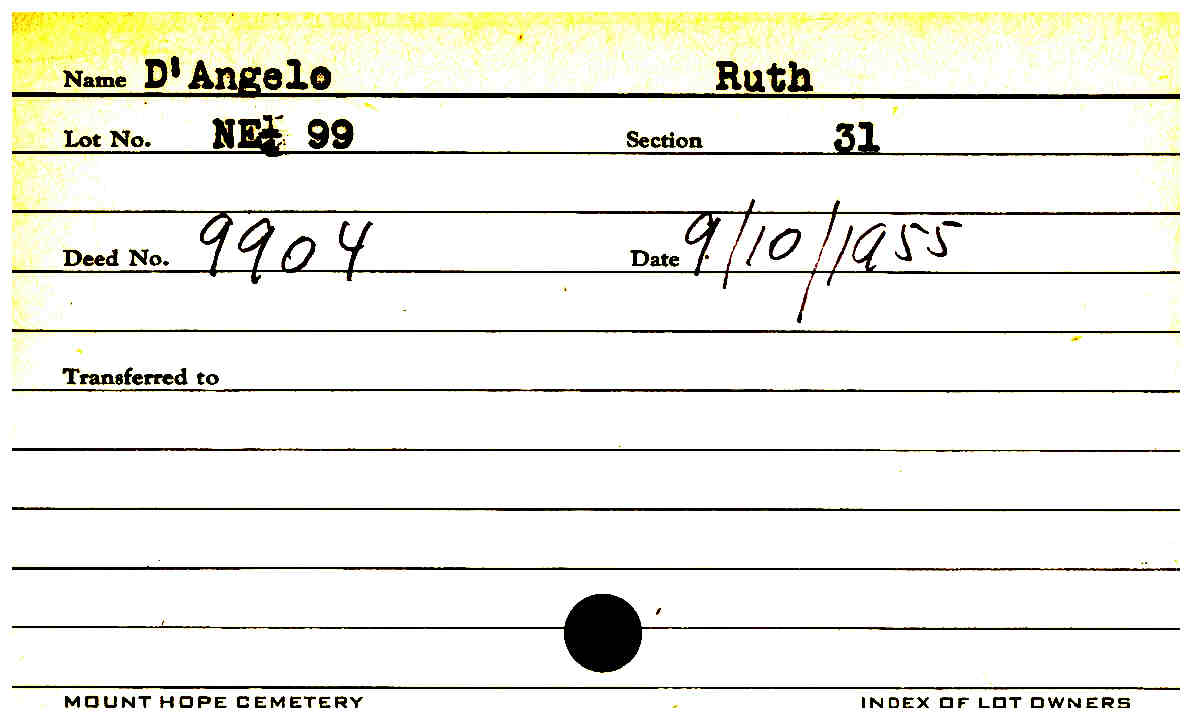 Name D'Angelo Ruth
Lot No. NE 99 Section 31
Deed No. 9904 Date 9/10/1955
Transferred to
MOUNT HOPE CEMETERY INDEX OF LOT OWNERS